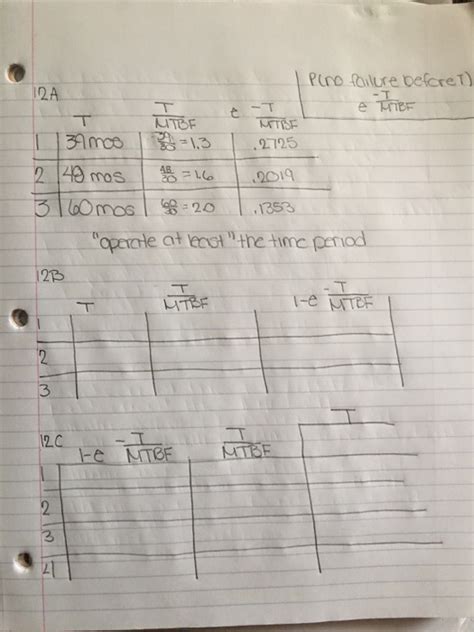 P(no failure before T)
e -T/MTBF
12A
T T/MTBF e -T/MTBF
1 39mos 39/30 = 1.3 .2725
2 48 mos 48/30 = 1.6 .2019
3 60mos 60/30 = 2.0 .1353
"operate at least" the time period
12B
T T/MTBF 1-e -T/MTBF
1
2
3
12C
1-e -T/MTBF T/MTBF T
1
2
3
4